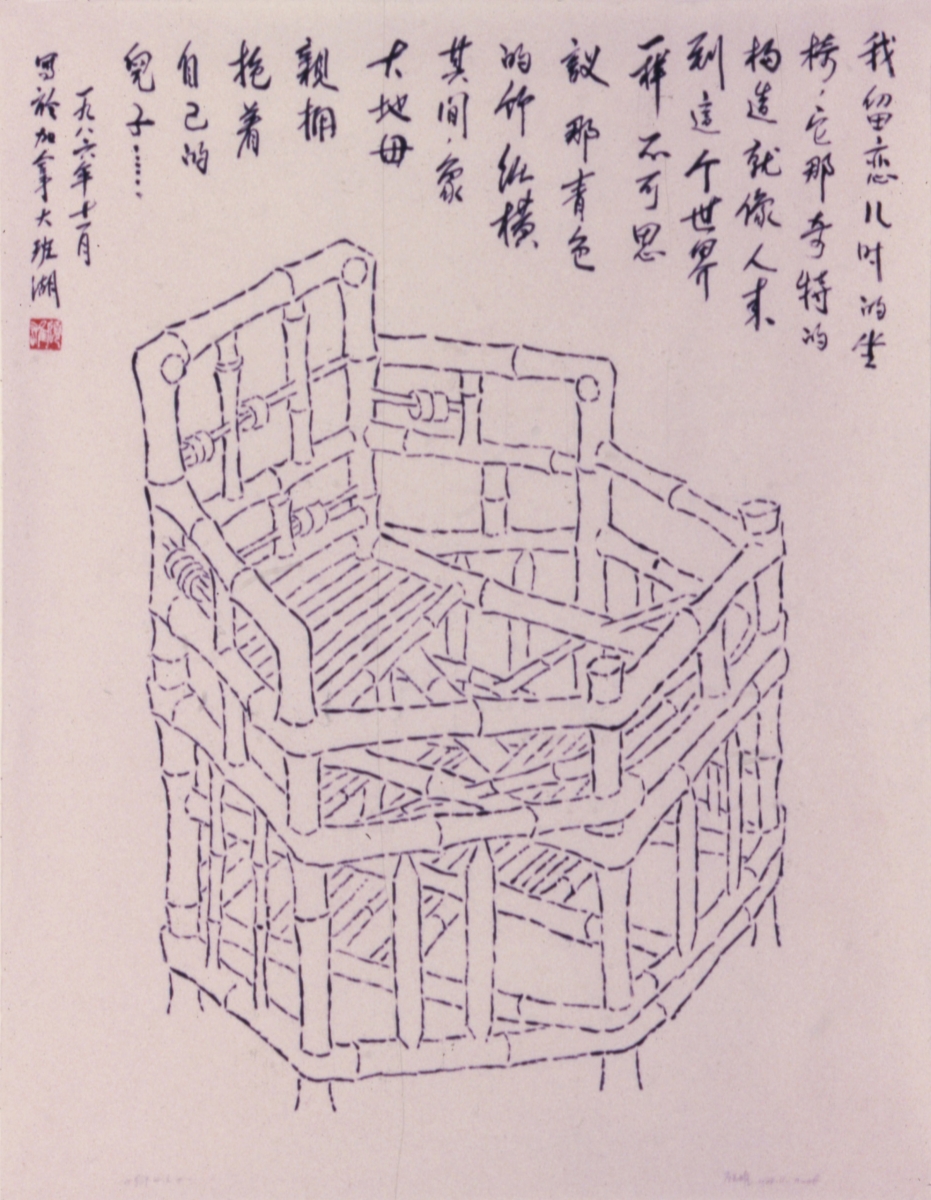 我留恋儿时的坐
椅，它那奇特的
构造就像人来
到這个世界
一样不可思
議 那青色
的竹纵横
其间，象
大地母
親拥
抱着
自己的
兒子……
一九八六年十一月
写於加拿大班湖